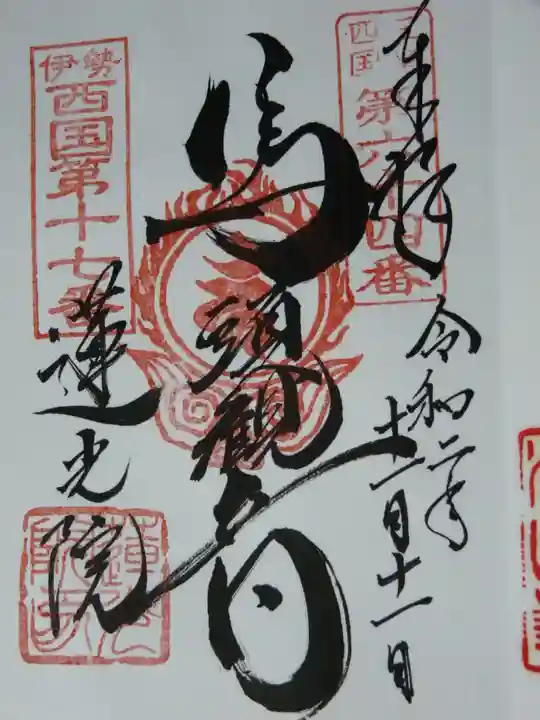 奉拝
四国
第六十四番
令和二年
十二月十一日
馬頭観音
伊勢
西国第十七番
蓮光院